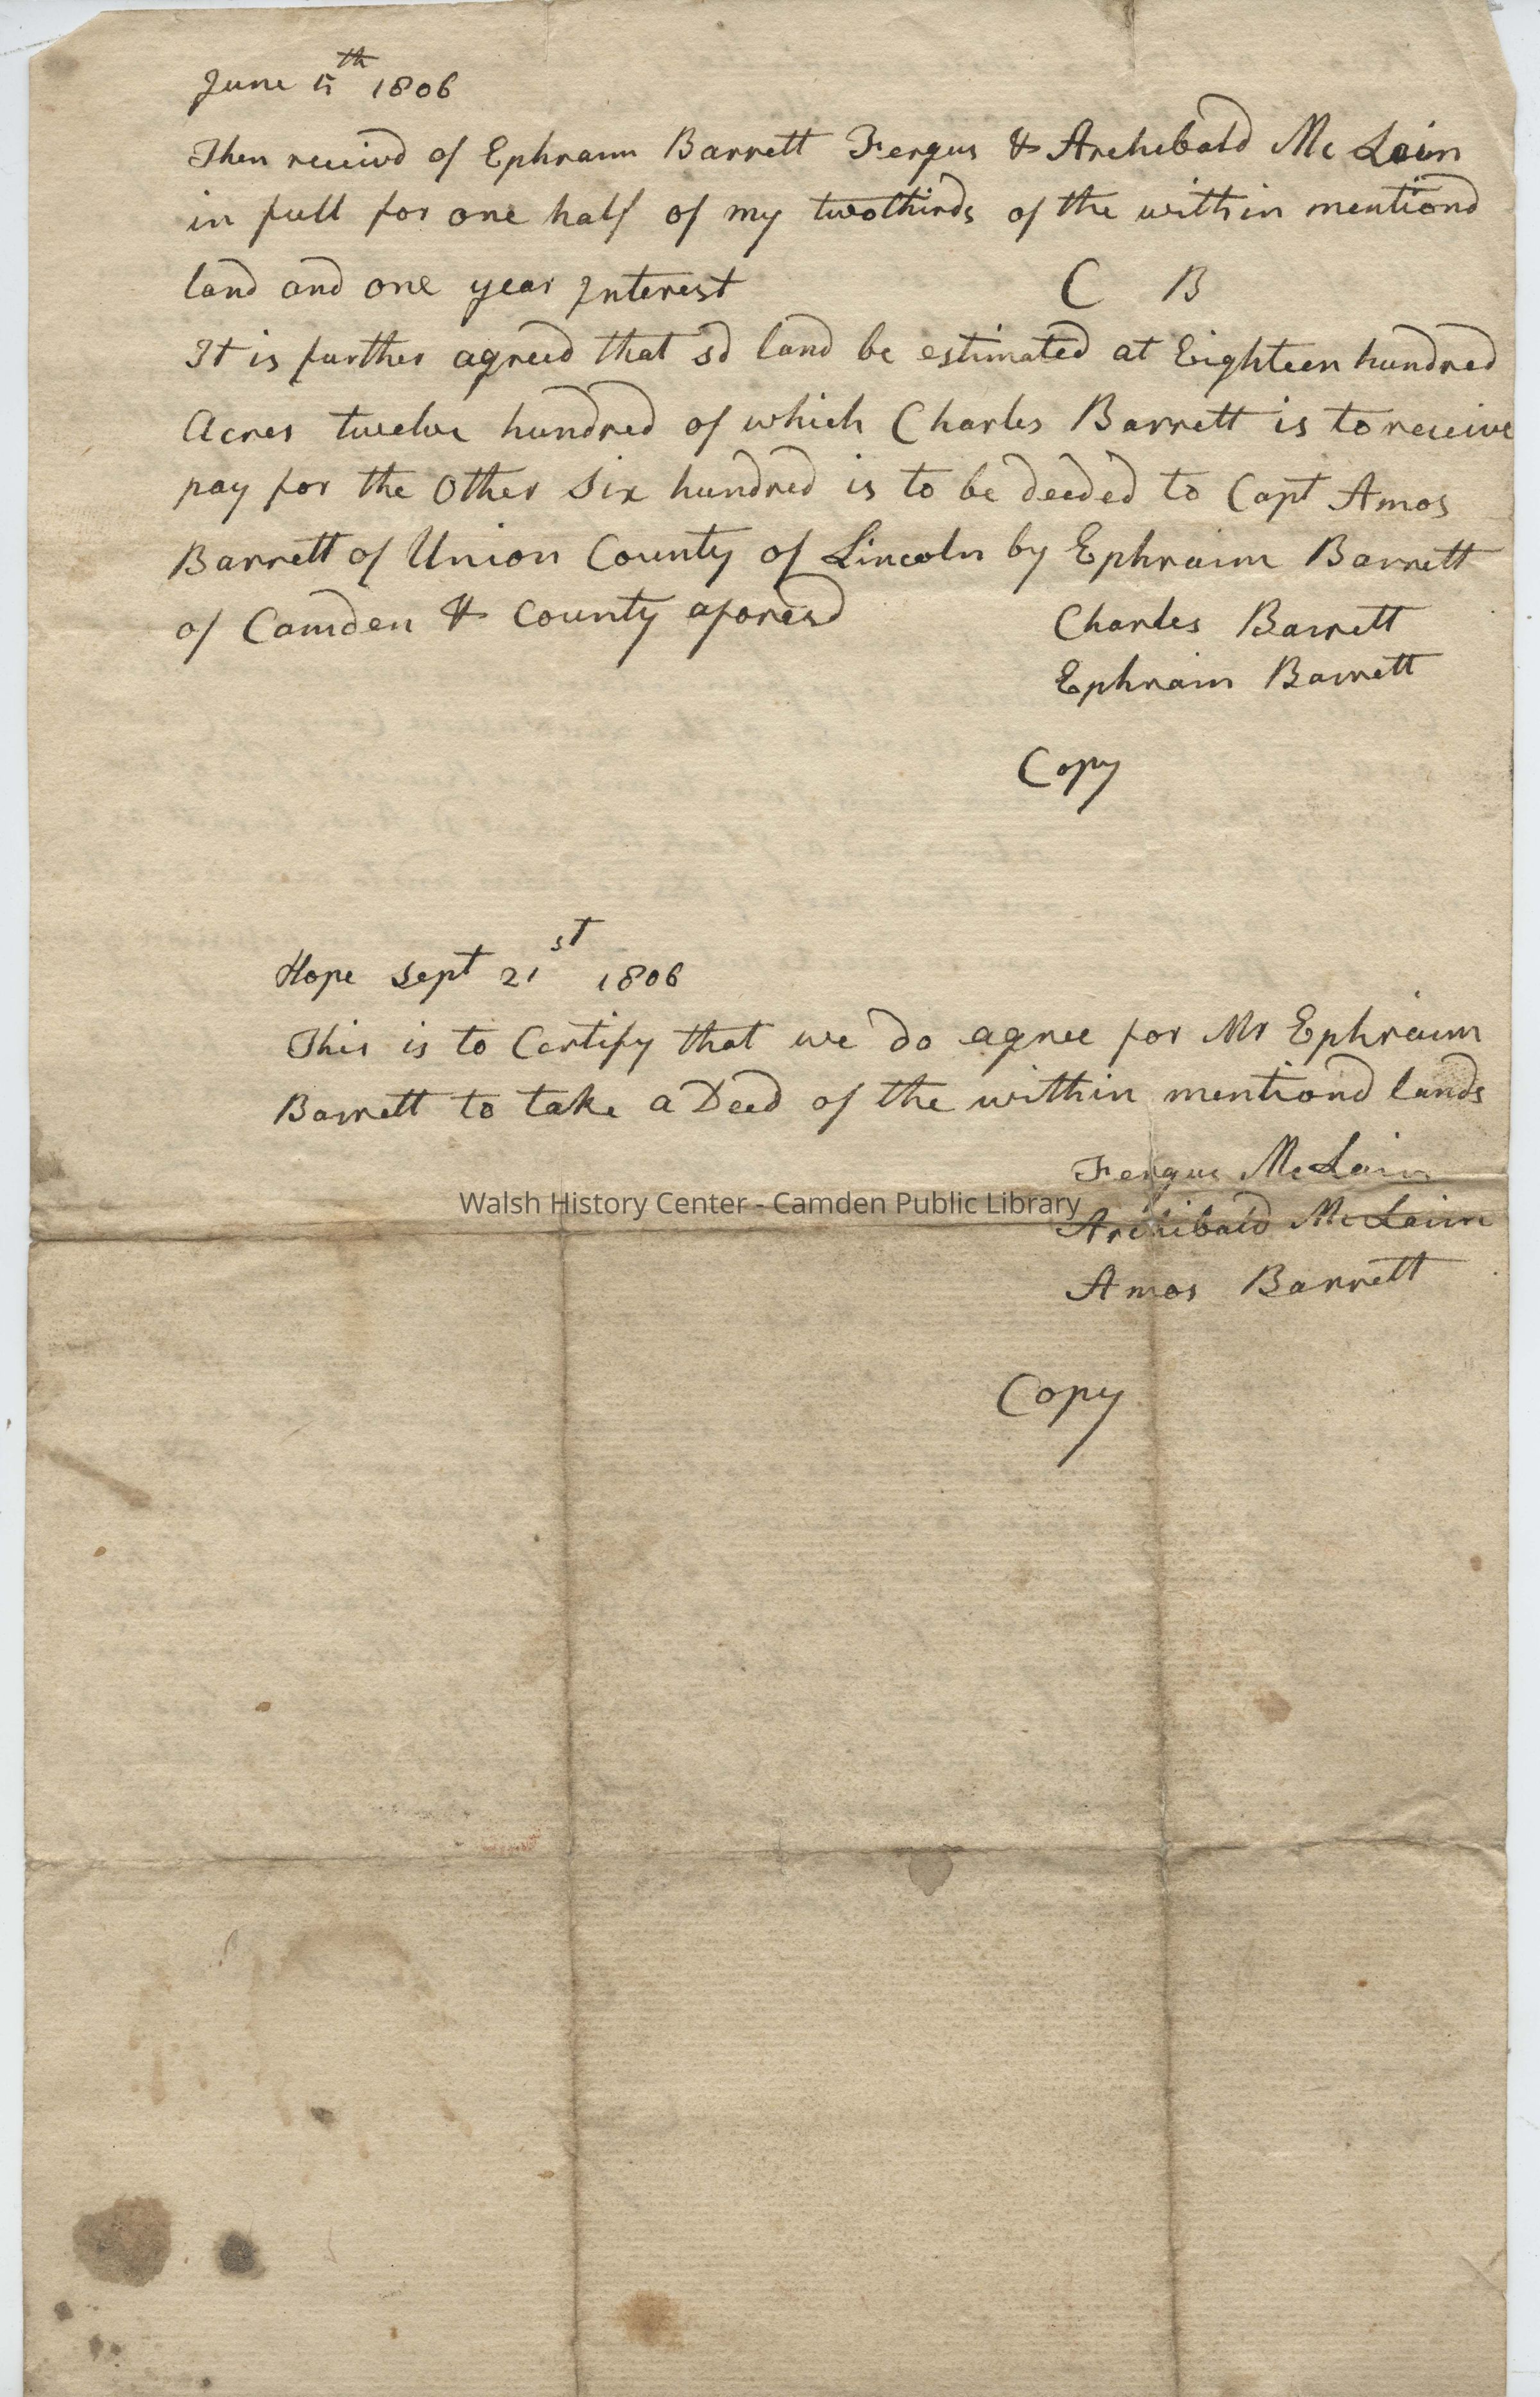 June 5th 1806
Then receivd of Ephraim Barrett Fergus & Archibald Mc Lain
in full for one half of my twothirds of the within mentiond
land and one year Interest C B
It is further agreed that sd land be estimated at Eighteen hundred
Acres twelve hundred of which Charles Barrett is to receive
pay for the Other Six hundred is to be deeded to Capt Amos
Barrett of Union County of Lincoln by Ephraim Barrett
of Camden & County aforesd
Charles Barrett
Ephraim Barrett
Copy
Hope Sept 21st 1806
This is to Certify that we do agree for Mr Ephraim
Barrett to take a Deed of the within mentiond lands
Fergus McLain
Walsh History Center - Camden Public Library
Archibald McLain
Amos Barrett
Copy